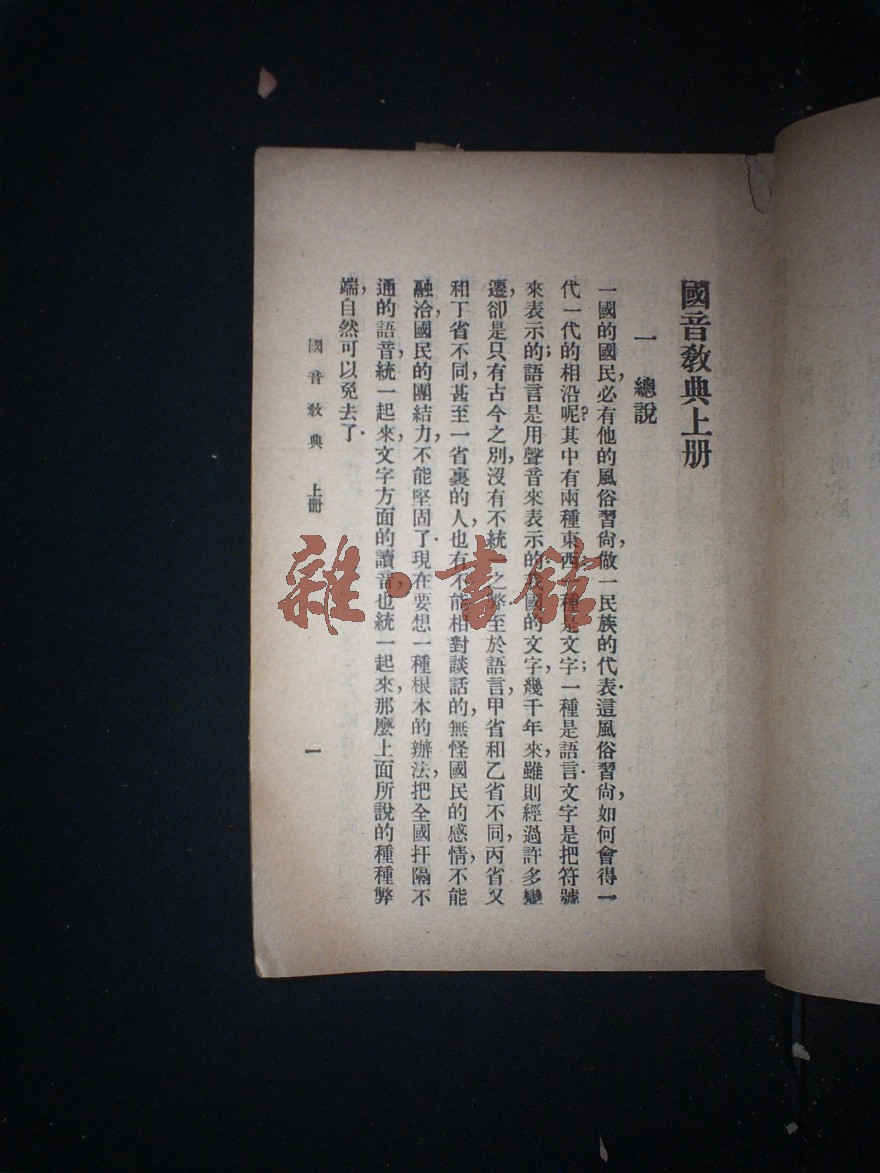 國音敎典上册
一 總說
一國的國民，必有他的風俗習尙，做一民族的代表．這風俗習尙，如何會得一
代一代的相沿呢？其中有兩種東西：一種是文字；一種是語言．文字是把符號
來表示的；語言是用聲音來表示的．我國的文字，幾千年來，雖則經過許多變
遷，卻是只有古今之別，沒有不統一之弊．至於語言，甲省和乙省不同，丙省又
和丁省不同，甚至一省裏的人，也有不能相對談話的，無怪國民的感情不能
融洽，國民的團結力，不能堅固了．現在要想一種根本的辦法，把全國扞隔不
通的語音，統一起來，文字方面的讀音，也統一起來，那麼上面所說的種種弊
端，自然可以免去了．
國音敎典 上册
一
雜·書館